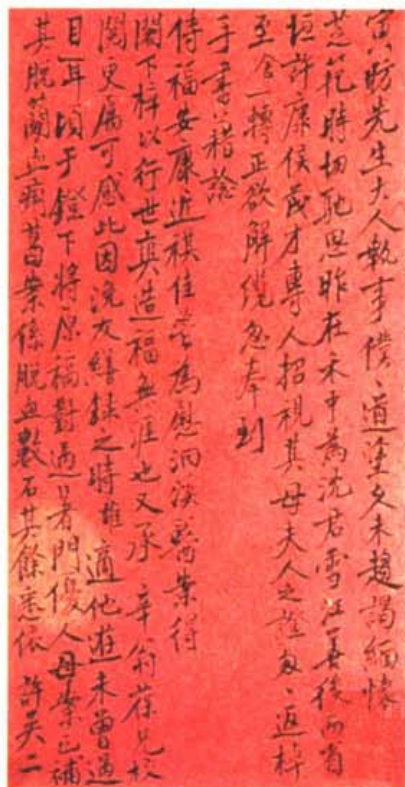 寅昉先生大人執事僕僕道塗久未趨謁緬懷
芝范時切馳思昨在禾中為沈君雪江善後而省
垣許康侯茂才專人招視其母夫人之證匆匆返棹
至舍一轉正欲解纜忽奉到
手書藉諗
侍福安康近祺佳善為慰洄溪醫案得
閣下梓以行世真造福無涯也又承辛翁葆兄校
閱更屬可感此因浼友繕錄之時雄適他遊未曾過
目耳頃于鐙下將原稿對過著門傷人母案已補
其脫簡血痢葛案係脫血數石其餘悉依許吳二